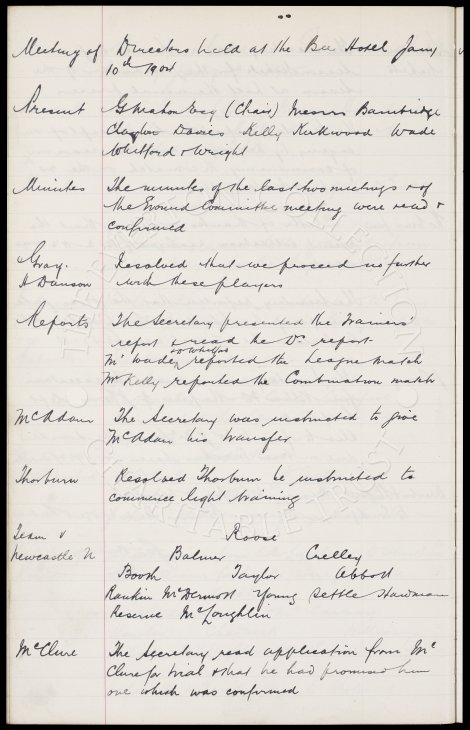 Meeting of Directors held at the Bee Hotel Jany
10th 1905
Present G Mahon Esq (Chair) Messrs Bainbridge
Clayton Davies Kelly Kirkwood Wade
Whitford & Wright
Minutes The minutes of the last two meetings & of
the Ground Committee meeting were read &
confirmed
Gray. Resolved that we proceed no further
H Dawson with these players
Reports The Secretary presented the Trainers'
report & read he Dr report
Mr Wade & Whitford reported the League match
Mr Kelly reported the Combination match
McAdam The Secretary was instructed to give
McAdam his transfer
Thorburn Resolved Thorburn be instructed to
commence light training
Team v Roose
Newcastle U Balmer Crelley
Booth Taylor Abbott
Rankin McDermott Young Settle Hardman
Reserve McLoughlin
McClure The Secretary read application from Mc
Clure for trial & that he had promised him
one which was confirmed
THE EVERTON COLLECTION
CHARITABLE TRUST